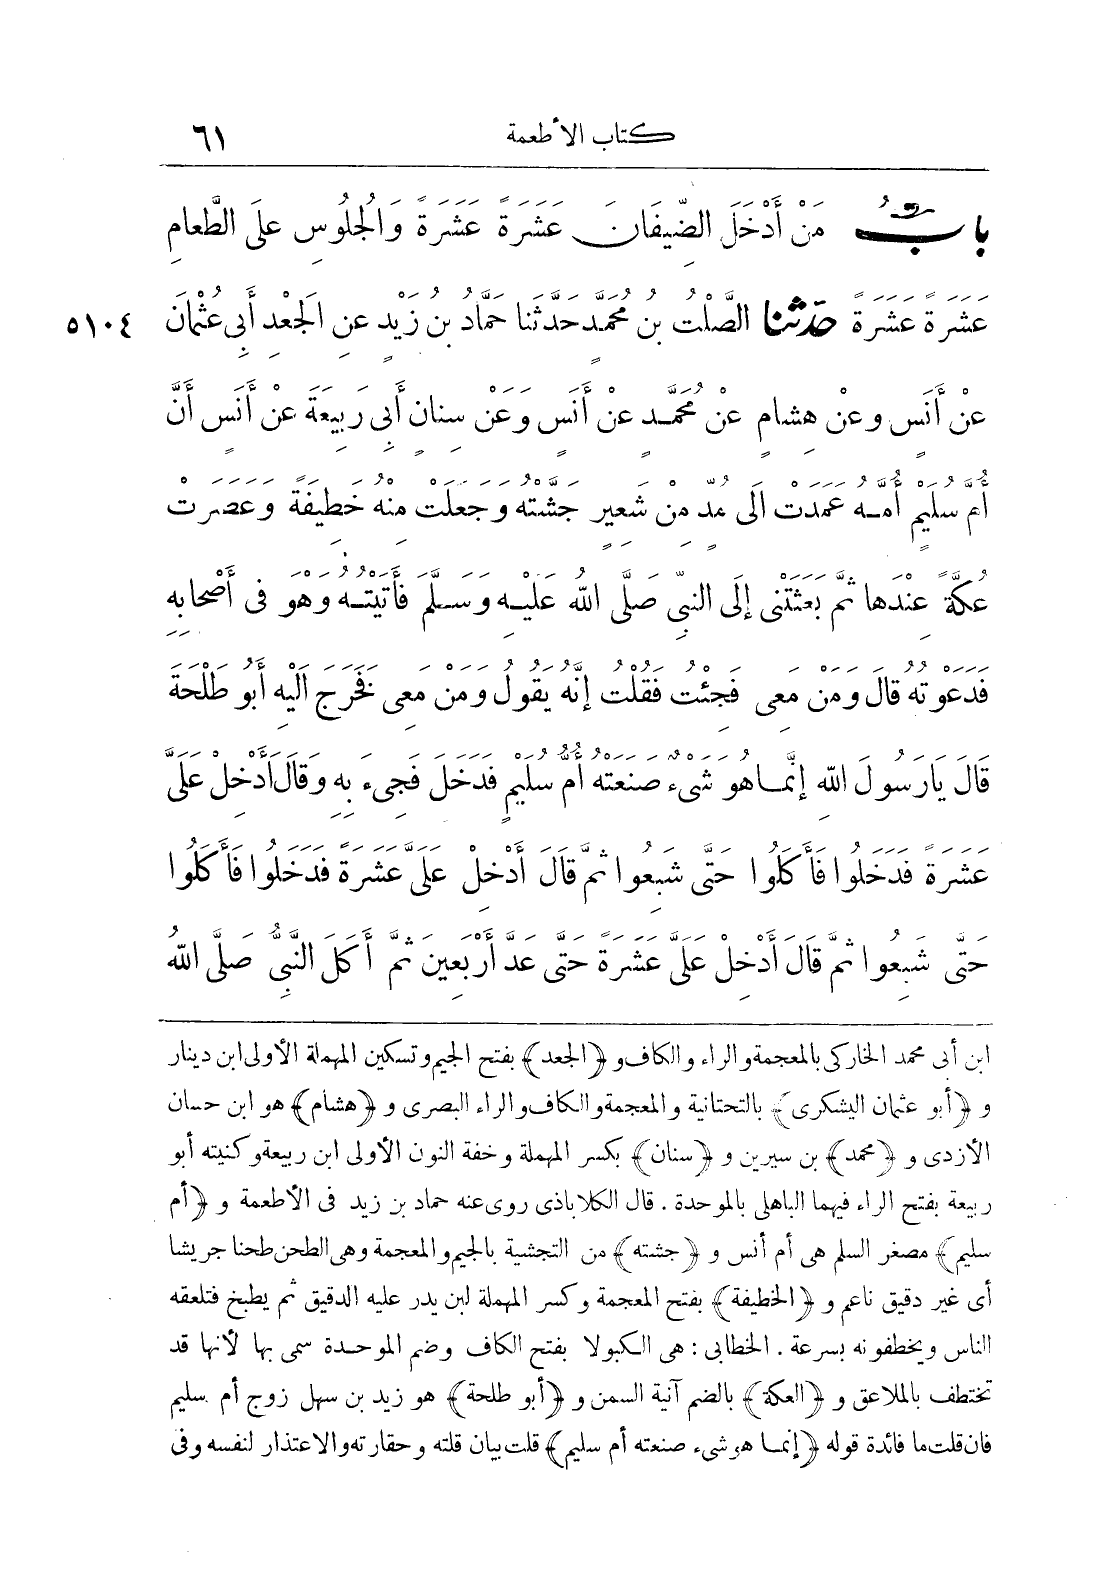 كتاب الأطعمة ٦١
بابُ مَنْ أَدْخَلَ الضِّيفَانَ عَشَرَةً عَشَرَةً وَالْجُلُوسِ عَلَى الطَّعَامِ
عَشَرَةً عَشَرَةً حدثنا الصَّلْتُ بنُ مُحَمَّدٍ حَدَّثَنَا حَمَّادُ بنُ زَيْدٍ عنِ الْجَعْدِ أَبِى عُثْمَانَ ٥١٠٤
عنْ أَنَسٍ وعنْ هِشامٍ عنْ مُحَمَّدٍ عنْ أَنَسٍ وَعَنْ سِنانٍ أَبِى رَبِيعَةَ عنْ أَنَسٍ أَنَّ
أُمَّ سُلَيْمٍ أُمَّهُ عَمَدَتْ الَى مُدٍّ منْ شَعِيرٍ جَشَّتْهُ وجَعَلَتْ مِنْهُ خَطِيفَةً وعَصَرَتْ
عُكَّةً عِنْدَها ثمَّ بَعَثَتْنِى إلَى النبىِّ صَلَّى اللّٰهُ عَلَيْهِ وَسَلَّمَ فَأَتَيْتُهُ وهُوَ فى أَصْحابِهِ
فَدَعَوْتُهُ قالَ ومَنْ مَعِى فَجِئْتُ فَقُلْتُ إنَّهُ يَقُولُ ومَنْ مَعِى فَخَرَجَ الَيْهِ أَبُو طَلْحَةَ
قَالَ يَارَسُولَ اللّٰهِ إنَّمَا هُوَ شَىْءٌ صَنَعَتْهُ أُمُّ سُلَيْمٍ فَدَخَلَ فَجِىءَ بِهِ وَقَالَ أَدْخِلْ عَلَىَّ
عَشَرَةً فَدَخَلُوا فَأَكَلُوا حَتَّى شَبِعُوا ثمَّ قَالَ أَدْخِلْ عَلَىَّ عَشَرَةً فَدَخَلُوا فَأَكَلُوا
حَتَّى شَبِعُوا ثمَّ قَالَ أَدْخِلْ عَلَىَّ عَشَرَةً حَتَّى عَدَّ أَرْبَعِينَ ثمَّ أَكَلَ النَّبِىُّ صَلَّى اللّٰهُ
ابن أبى محمد الخاركى بالمعجمة والراء والكاف و ﴿الجعد﴾ بفتح الجيم وتسكين المهملة الأولى ابن دينار
و ﴿أبو عثمان اليشكرى﴾ بالتحتانية والمعجمة والكاف والراء البصرى و ﴿هشام﴾ هو ابن حسان
الأزدى و ﴿محمد﴾ بن سيرين و ﴿سنان﴾ بكسر المهملة وخفة النون الأولى ابن ربيعة وكنيته أبو
ربيعة بفتح الراء فيهما الباهلى بالموحدة . قال الكلاباذى روى عنه حماد بن زيد فى الأطعمة و ﴿أم
سليم﴾ مصغر السلم هى أم أنس و ﴿جشته﴾ من التجشية بالجيم والمعجمة وهى الطحن طحنا جريشا
أى غير دقيق ناعم و ﴿الخطيفة﴾ بفتح المعجمة وكسر المهملة لبن يدر عليه الدقيق ثم يطبخ فتلعقه
الناس ويخطفونه بسرعة . الخطابى : هى الكبولا بفتح الكاف وضم الموحدة سمى بها لأنها قد
تختطف بالملاعق و ﴿العكة﴾ بالضم آنية السمن و ﴿أبو طلحة﴾ هو زيد بن سهل زوج أم سليم
فان قلت ما فائدة قوله ﴿إنما هو شىء صنعته أم سليم﴾ قلت بيان قلته وحقارته والاعتذار لنفسه وفى